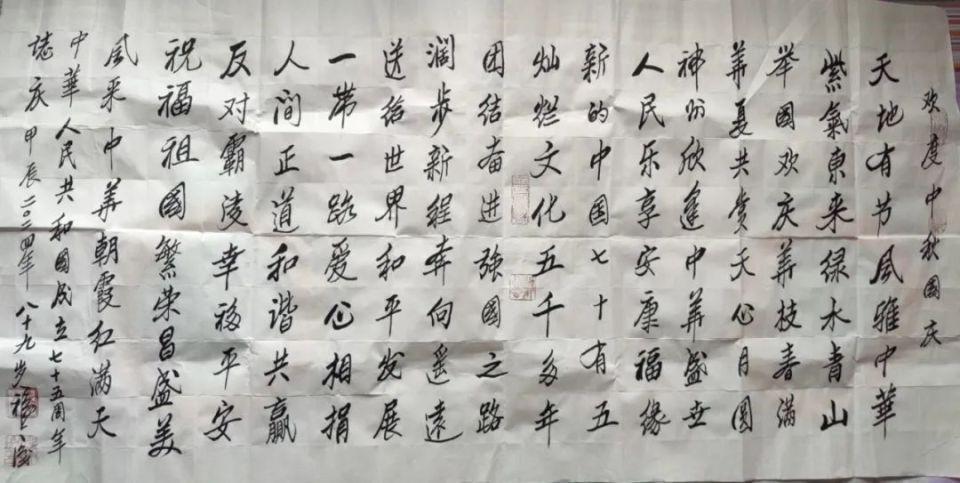 欢度中秋國庆
天地有节风雅中華
紫氣東来绿水青山
举國欢庆華枝春满
華夏共赏天心月圆
神州欣逢中華盛世
人民乐享安康福缘
新的中国七十有五
灿烂文化五千多年
团结奋进强國之路
阔步新程奔向遥远
送给世界和平发展
一带一路爱心相捐
人间正道和谐共赢
反对霸陵幸福平安
祝福祖國繁荣昌盛美
风来中華朝霞红满天
中華人民共和國成立七十五周年
誌庆甲辰二〇二四年八十九岁